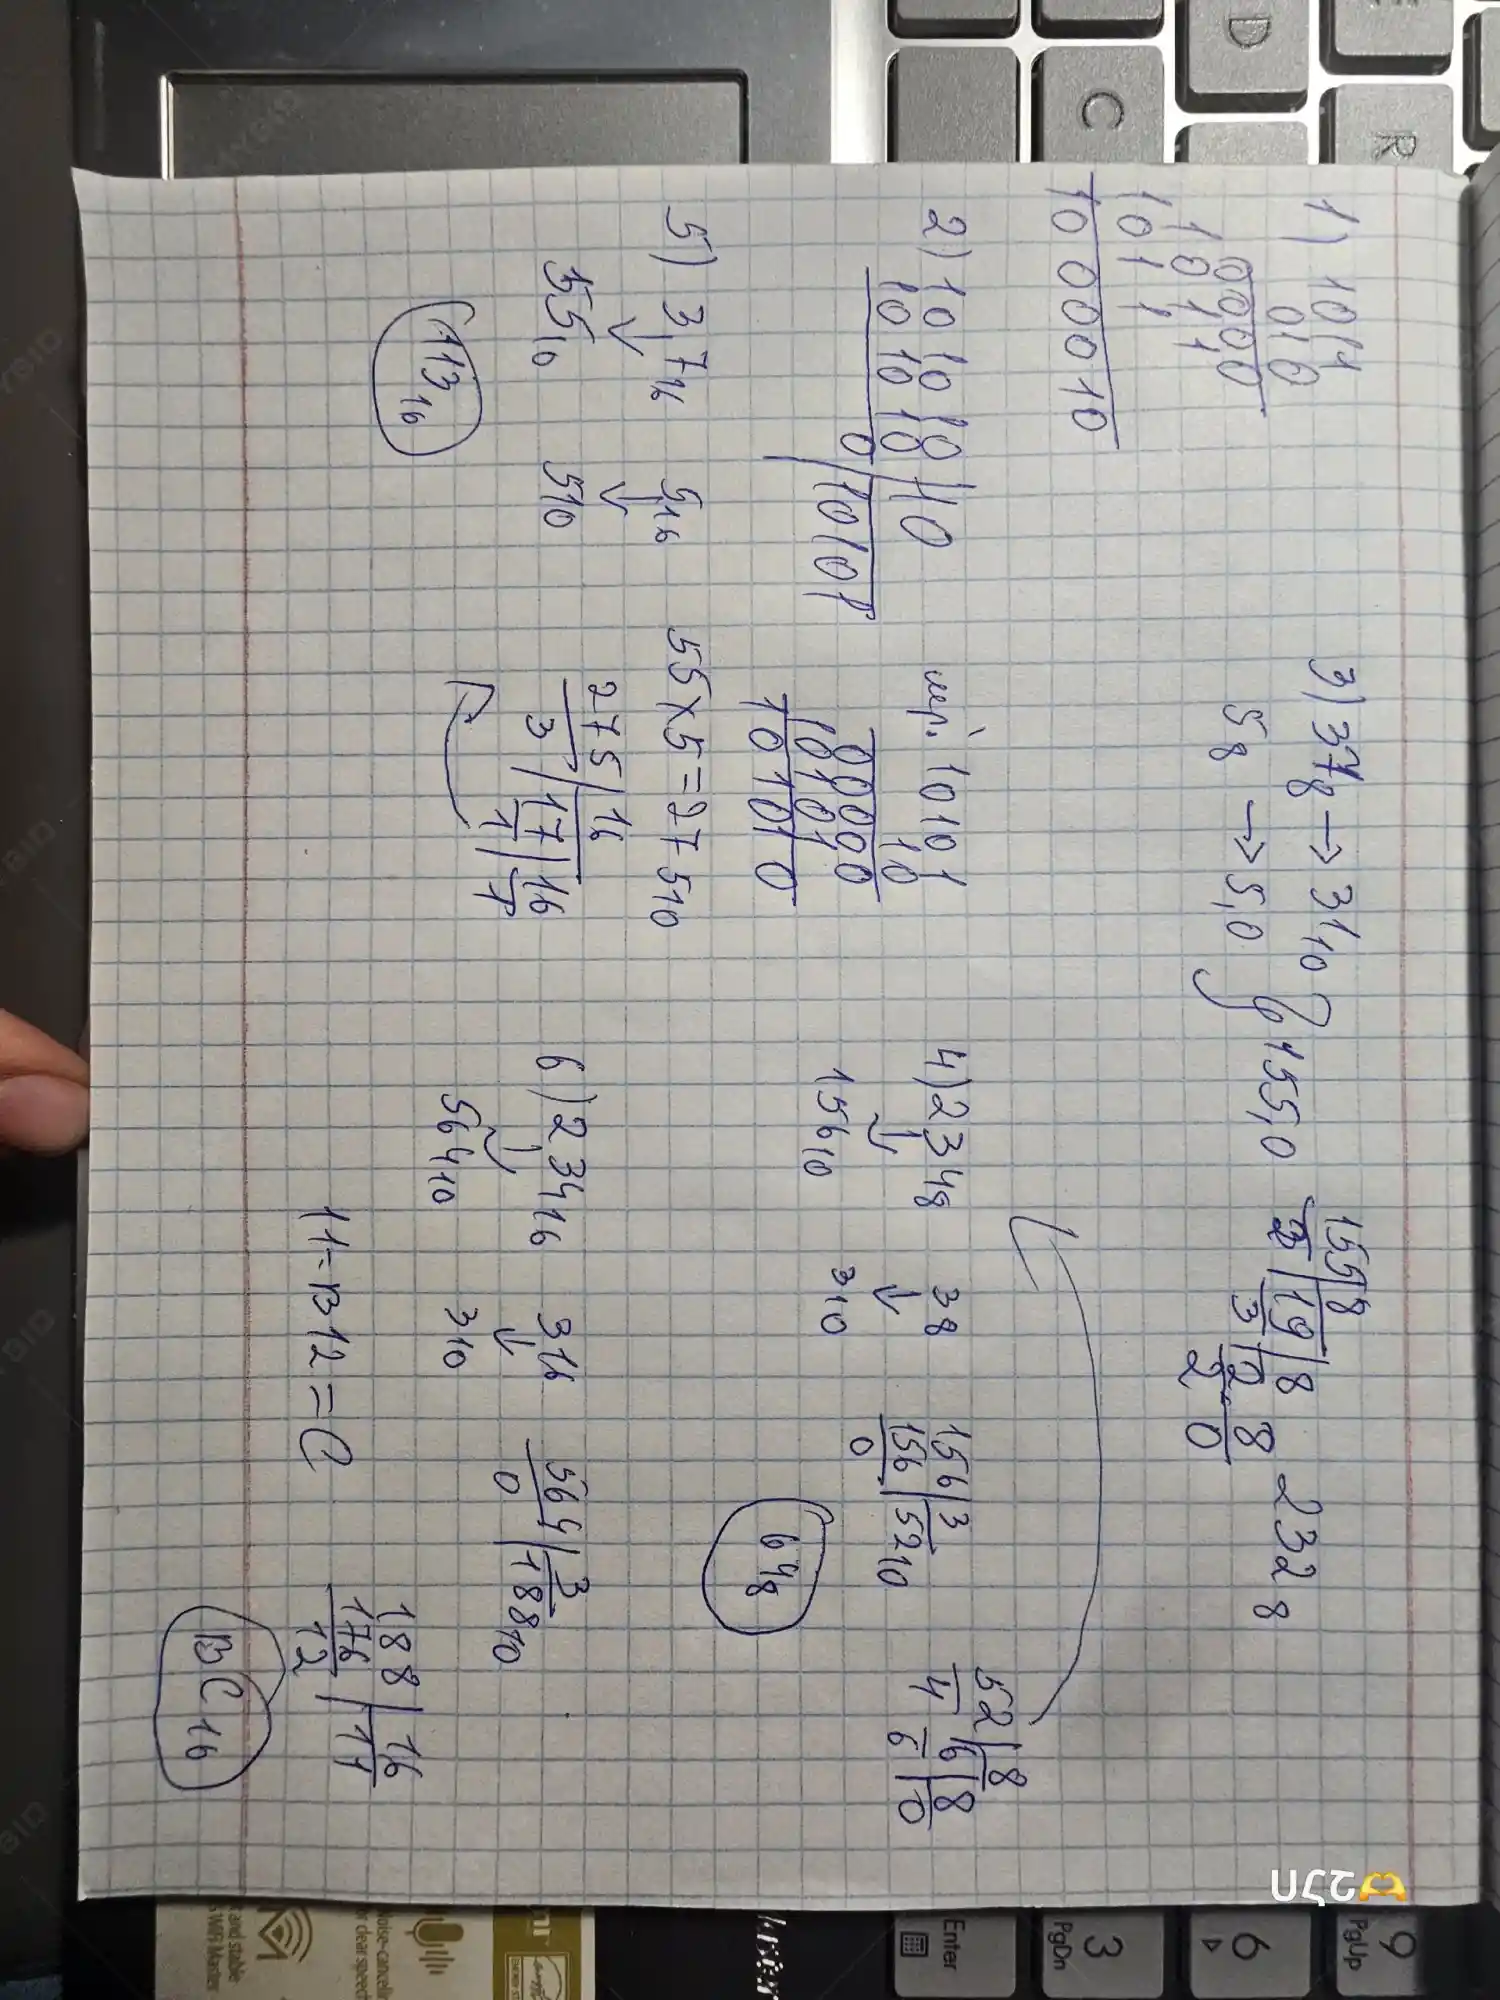 1) 1011
010
0000
1011
1011
1000010
2) 101010 | 10
101010 | 10101
0
пер. 10101
10
00000
10101
101010
3) 37₈ → 31₁₀
5₈ → 5₁₀
155₁₀
155 | 8
3 | 19 | 8
3 | 2 | 8
2 | 0
232₈
4) 234₈
156₁₀
3₈
3₁₀
156 | 3
156 | 52₁₀
0
52 | 8
4 | 6 | 8
6 | 0
64₈
5) 37₁₆
5₁₆
55₁₀
5₁₀
55 × 5 = 275₁₀
275 | 16
3 | 17 | 16
1 | 1
113₁₆
6) 234₁₆
3₁₆
564₁₀
3₁₀
564 | 3
0 | 188₁₀
188 | 16
176 | 11
12
11 - B 12 = C
BC₁₆
Enter
3
PgDn
6
9
PgUp
D
C
R